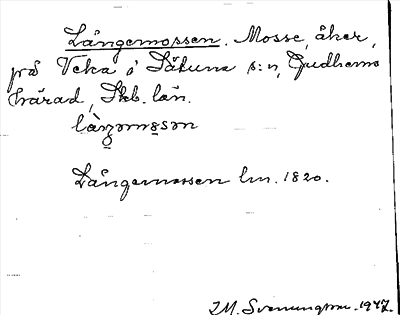 Långemossen. Mosse, åker,
på Veka i Säkuna s:n, Gudhems
härad, Skb. län.
làŋəmɷsən
Långemossen lm. 1820.
I.M. Svenungsson. 1947.